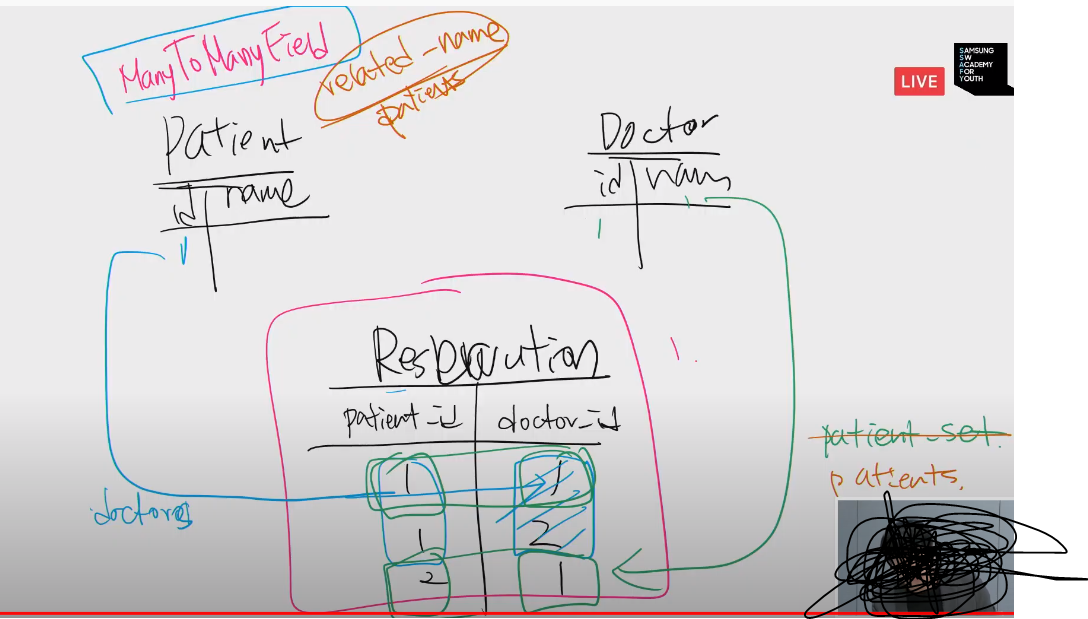 ManyToManyField
related_name
patients
SAMSUNG
SW
ACADEMY
FOR
YOUTH
LIVE
Patient
id name
1
Doctor
id nam
1
patient_id doctor_id
1 1
1 2
2 1
doctors
patient_set.
patients.